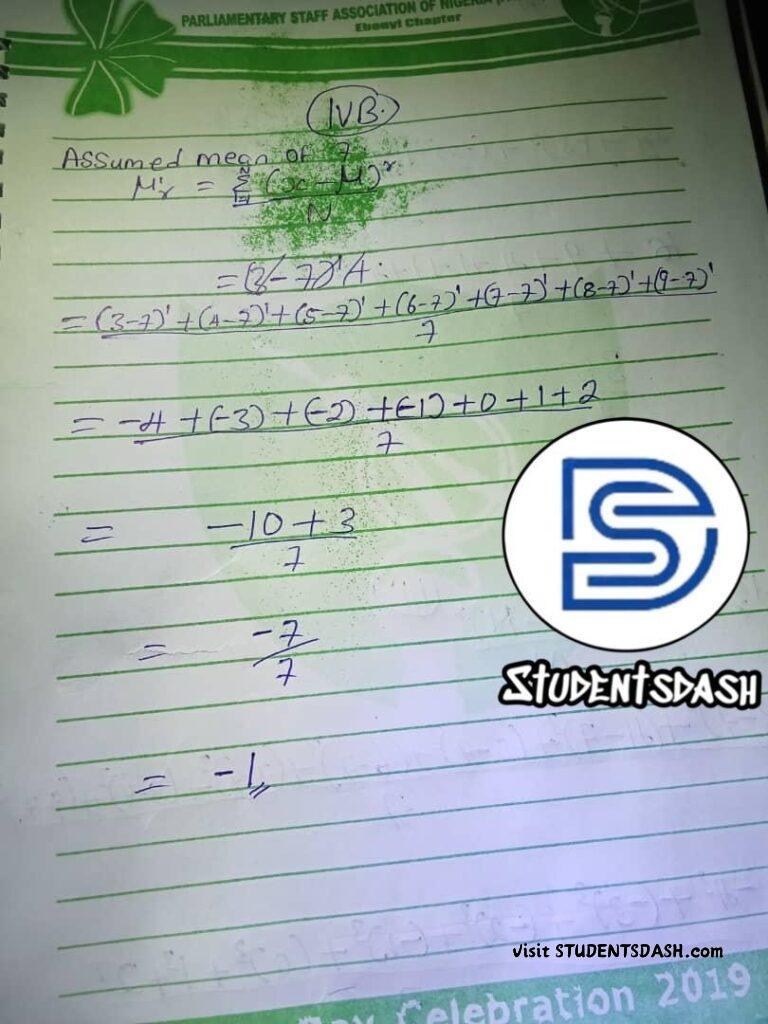 PARLIAMENTARY STAFF ASSOCIATION OF NIGERIA
Ebonyi Chapter
IVB.
Assumed mean of 7
μ'r = Σ (x - μ)^r
N
i=1
N
= (3 - 7)' A
= (3-7)' + (4-7)' + (5-7)' + (6-7)' + (7-7)' + (8-7)' + (9-7)'
7
= -4 + (-3) + (-2) + (-1) + 0 + 1 + 2
7
= -10 + 3
7
= -7
7
= -1
STUDENTSDASH
visit STUDENTSDASH.com
Day Celebration 2019